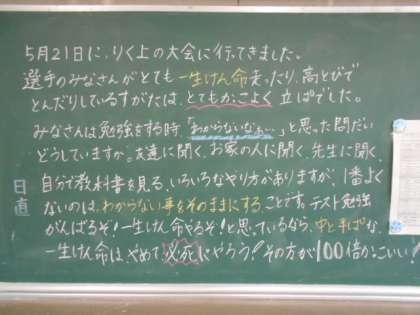 5月21日に、りく上の大会に行ってきました。
選手のみなさんがとても一生けん命走ったり、高とびで
とんだりしているすがたは、とてもかっこよく立ぱでした。
みなさんは勉強をする時「わからないなぁ…」と思った問だい
どうしていますか。友達に聞く、お家の人に聞く、先生に聞く、
自分で教科書を見る、いろいろなやり方がありますが、1番よく
ないのは、わからない事をそのままにする、ことです。テスト勉強
がんばるぞ！一生けん命やるぞ！と思っているなら、中と半ぱな、
一生けん命は、やめて、必死にやろう！その方が100倍かっこいい！
日直